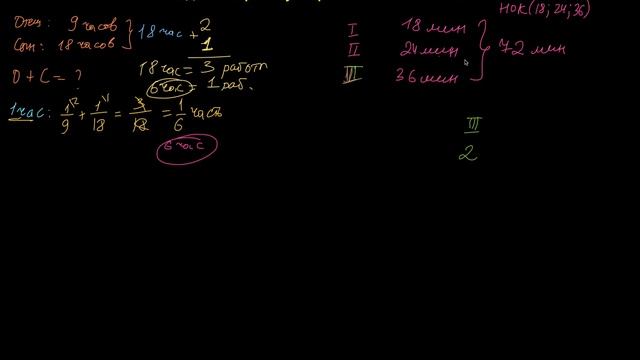 Отец: 9 часов
Сын: 18 часов
18 час
+ 2
1
О + С = ?
18 час = 3 работ
6 час = 1 раб.
1 час: 1/9 + 1/18 = 3/18 = 1/6 часть
6 час
НОК(18; 24; 36)
I 18 мин
II 24 мин
III 36 мин
72 мин
III
2